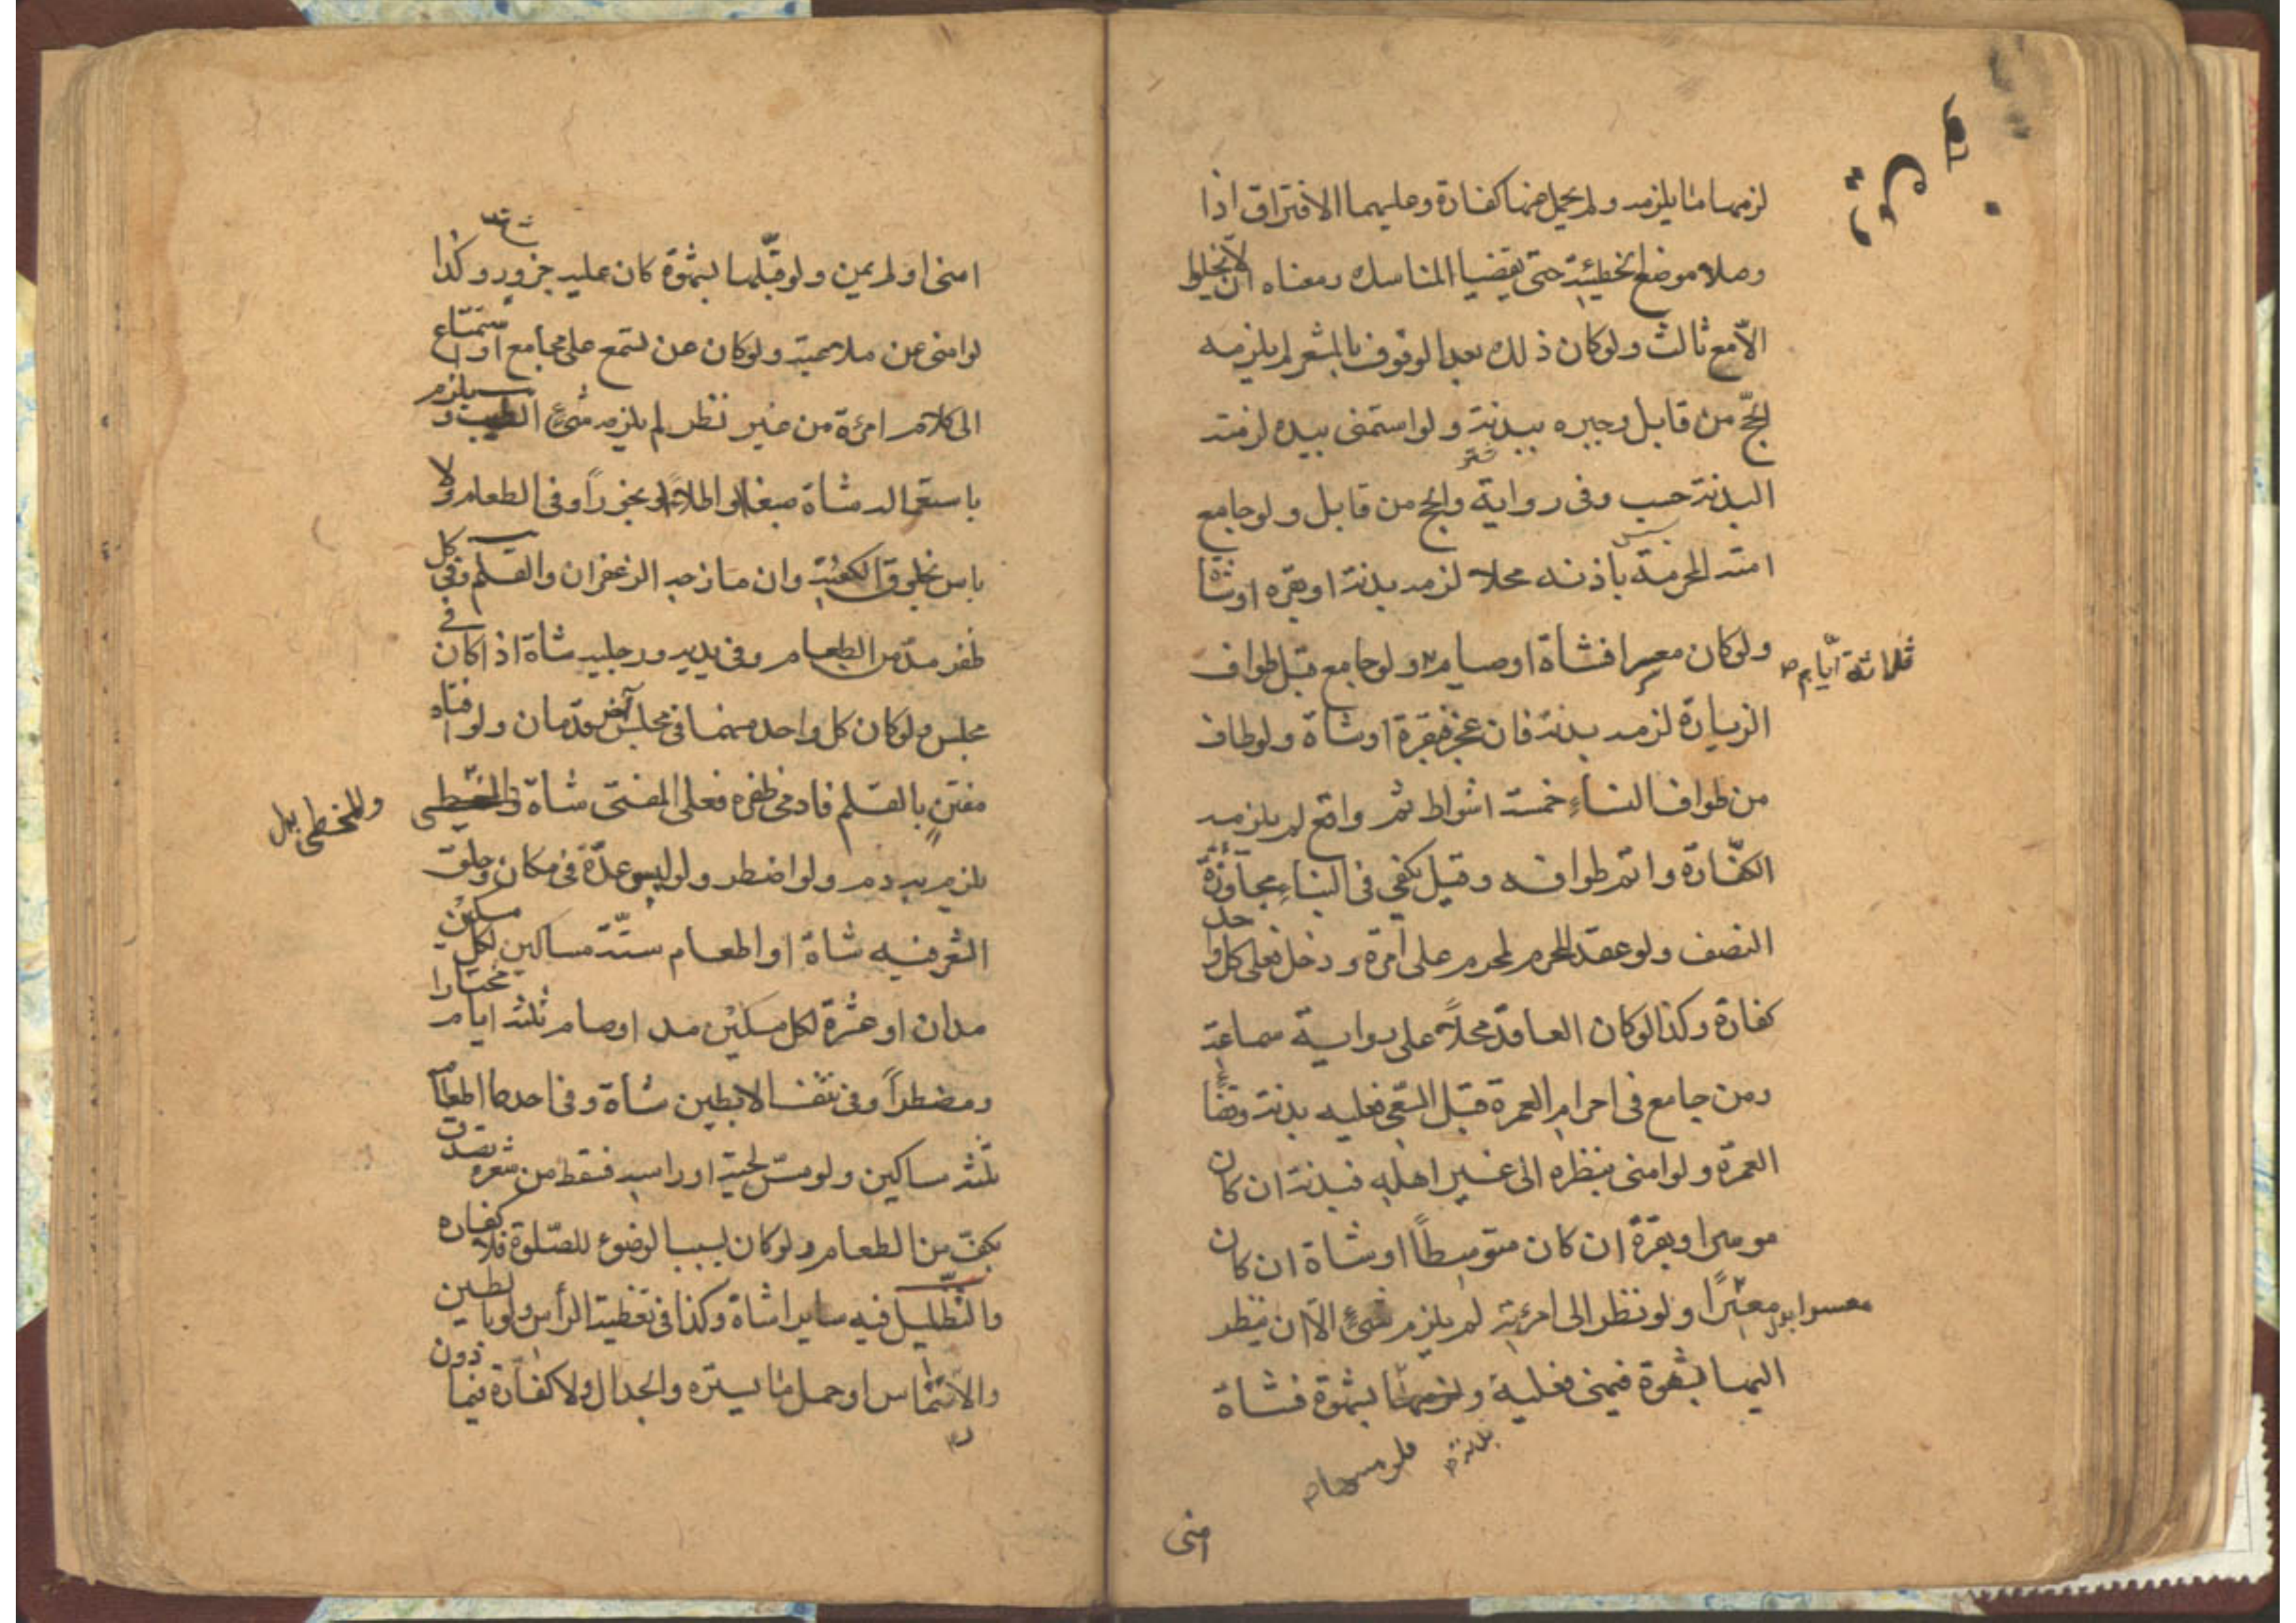 لزمها ما يلزمه ولم يحمل عنها كفارة وعليهما الافتراق اذا
وصلا موضع الخطيئة حتى يقضيا المناسك ومعناه ان لا يخلوا
الاّ مع ثالث ولو كان ذلك بعد الوقوف بالمشعر لم يلزمه
الحجّ من قابل وجبره ببدنة ولو استمنى بيده لزمته
البدنة حسب وفى رواية والحج من قابل ولو جامع
امته المحرمة باذنه محلا لزمه بدنة او بقره او شاة
ولو كان معسرا فشاة او صيام ولو جامع قبل طواف
ثلاثة ايّام
الزيارة لزمه بدنة فان عجز فبقرة او شاة ولو طاف
من طواف النساء خمسة اشواط ثم واقع لم يلزمه
الكفّارة واتم طوافه وقيل يكفي فى البناء مجاوزة
النصف ولو عقد المحرم لمحرم على امرة ودخل فعلى كل واحد
كفارة وكذا لو كان العاقد محلاً على رواية سماعة
ومن جامع فى احرام العمرة قبل السعى فعليه بدنة وقضاء
العمرة ولو امنى بنظره الى غير اهله فبدنة ان كان
موسرا او بقرة ان كان متوسطاً او شاة ان كان
معسرا ولو نظر الى امرئته لم يلزم شئ الاّ ان ينظر
معسرا بدل
اليها بشهوة فيمنى فعليه ولو مسها بشهوة فشاة
بدنة
ولو مسها
امنى
امنى او لم يمن ولو قبّلها بشهوة كان عليه جزور وكذا
لو امنى عن ملاعبة ولو كان عن تسمع على مجامع او استماع
الى كلام امرئة من غير نظر لم يلزمه شئ الطيب و يلزم
باستعماله شاة صبغا او اطلاءً او بخوراً او فى الطعام ولا
باس بخلوق الكعبة وان مازجه الزعفران والقلم وفى كل
ظفر مدّ من الطعام وفى يديه ورجليه شاة اذا كان فى
مجلس ولو كان كل واحد منهما فى مجلس آخر فدمان ولو افتاه
مفتن بالقلم فادمى ظفره فعلى المفتى شاة والمخيط
وللمخطى بدل
يلزم به دم ولو اضطر ولو لبس عدّة فى مكان وحلق
الشعر فيه شاة او اطعام ستّة مساكين لكل مسكين
مدان او عشرة لكل مسكين مد او صام ثلثة ايام مختارا
ومضطراً وفى نتف الابطين شاة وفى احدهما اطعام
ثلثة مساكين ولو مسّ لحيته او راسه فسقط من شعره تصدق
بكفّ من الطعام ولو كان بسبب الوضوء للصّلوة فلا كفاره
والتّظليل فيه سايرا شاة وكذا فى تغطية الرأس ولو بالطين
والارتماس او حمل ما يستره والجدال ولا كفّارة فيما دون